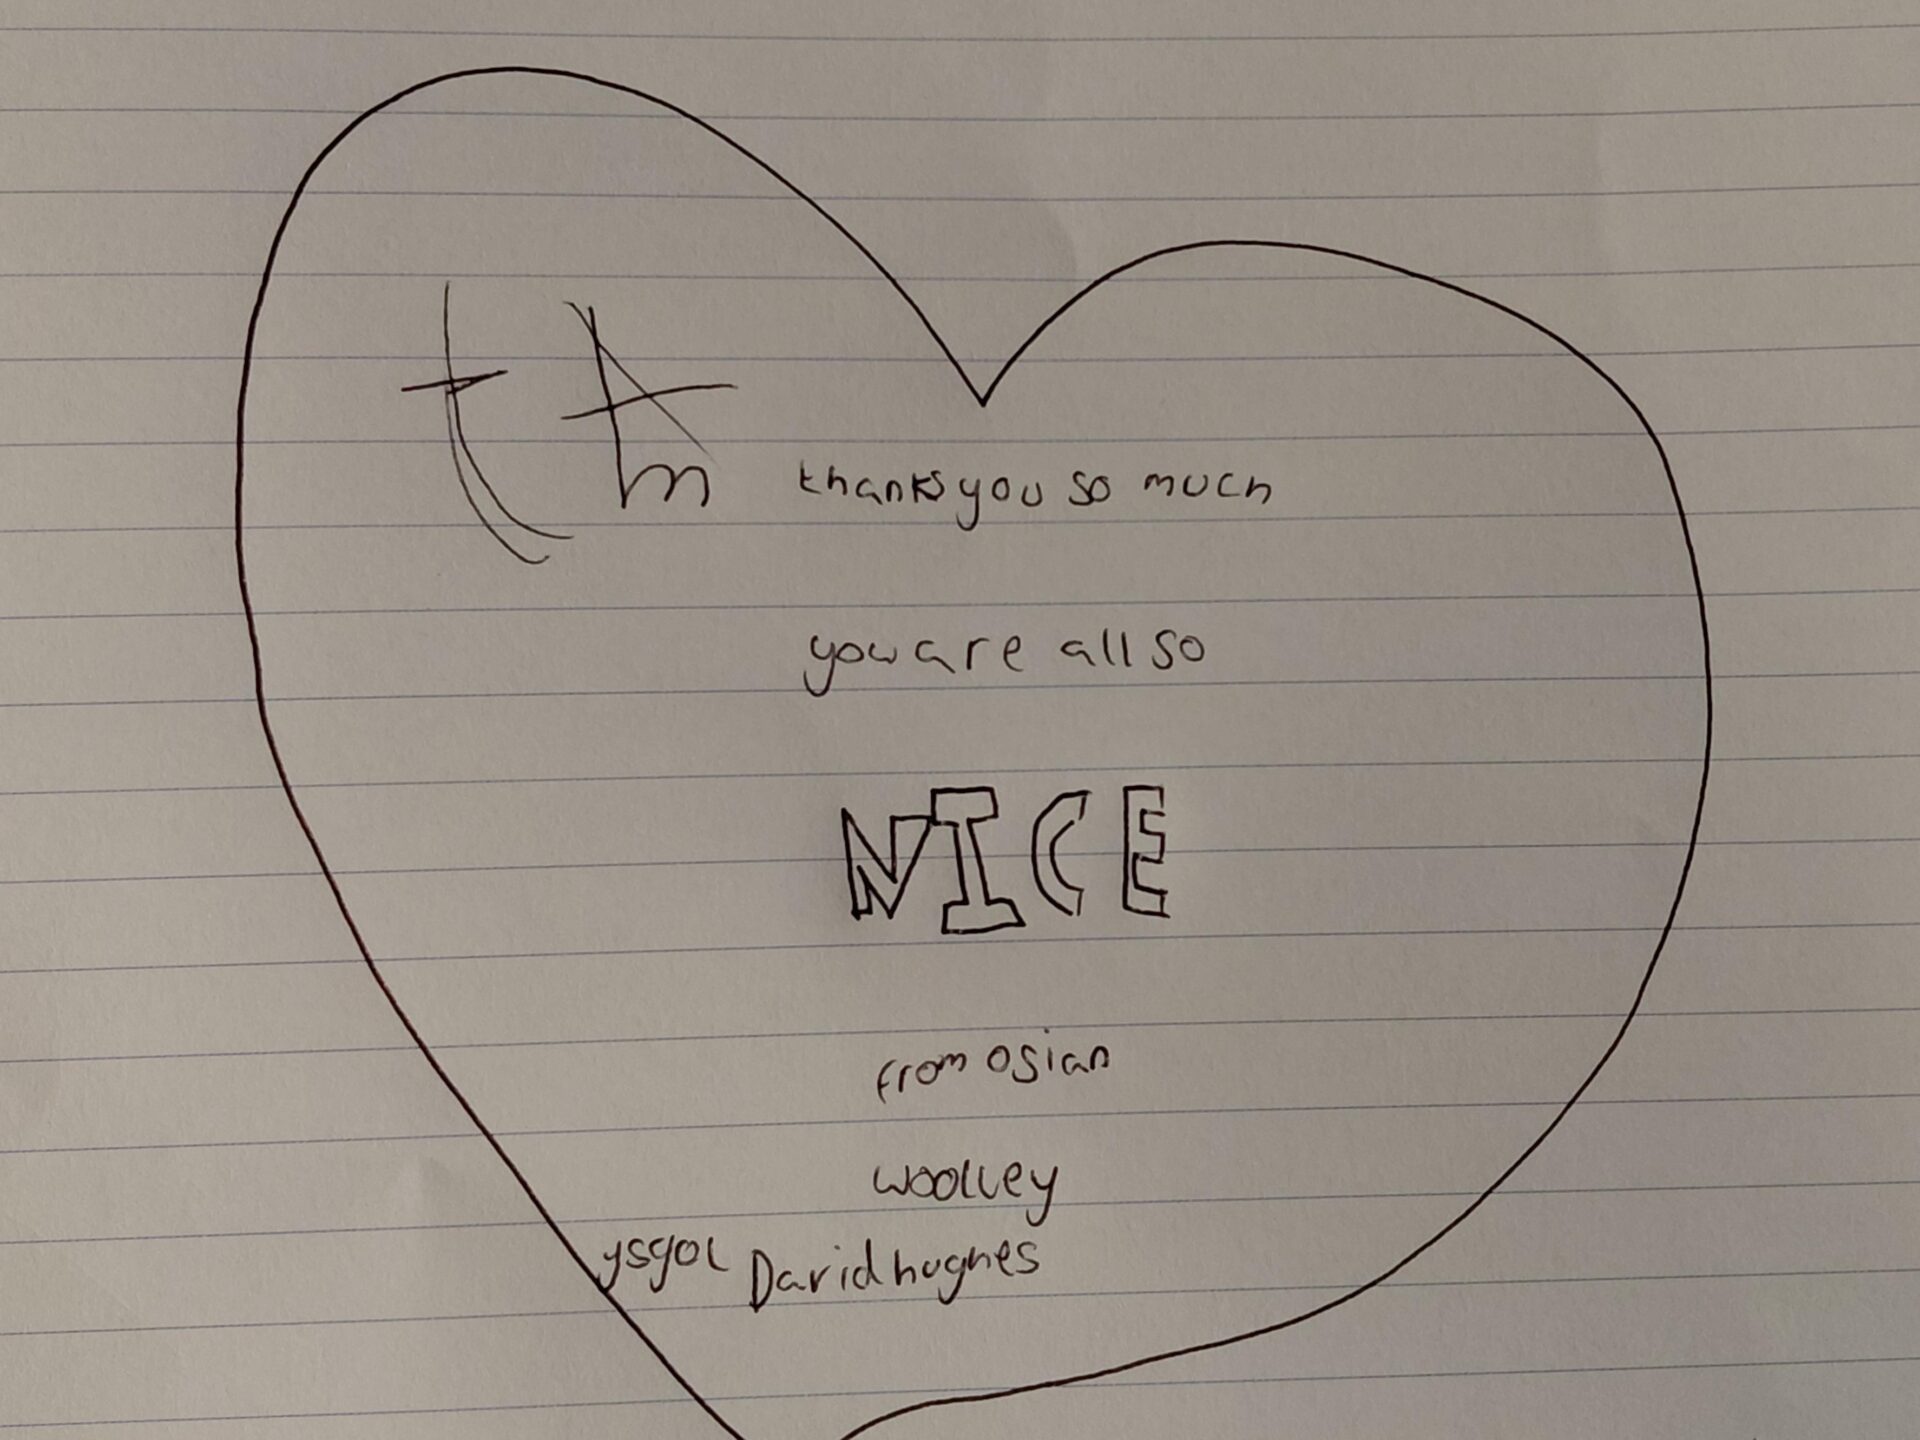 thanks you so much
you are all so
NICE
from osian
woolley
ysgol David hughes